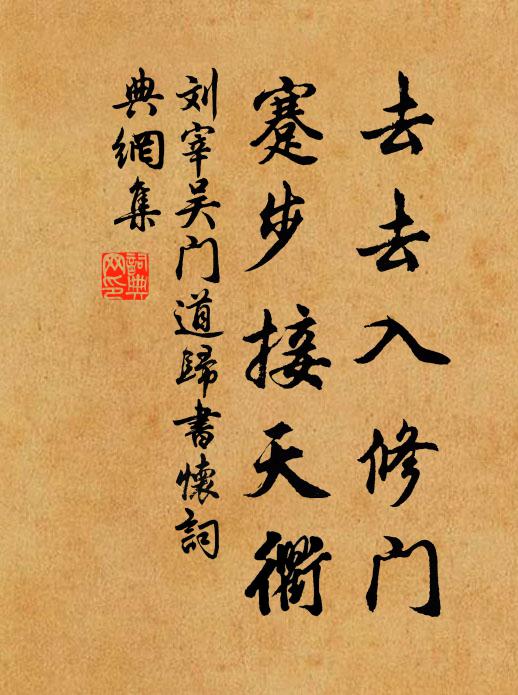 去去入修门
蹇步接天衢
刘宰吴门道归书怀词
典網集
詞典網印